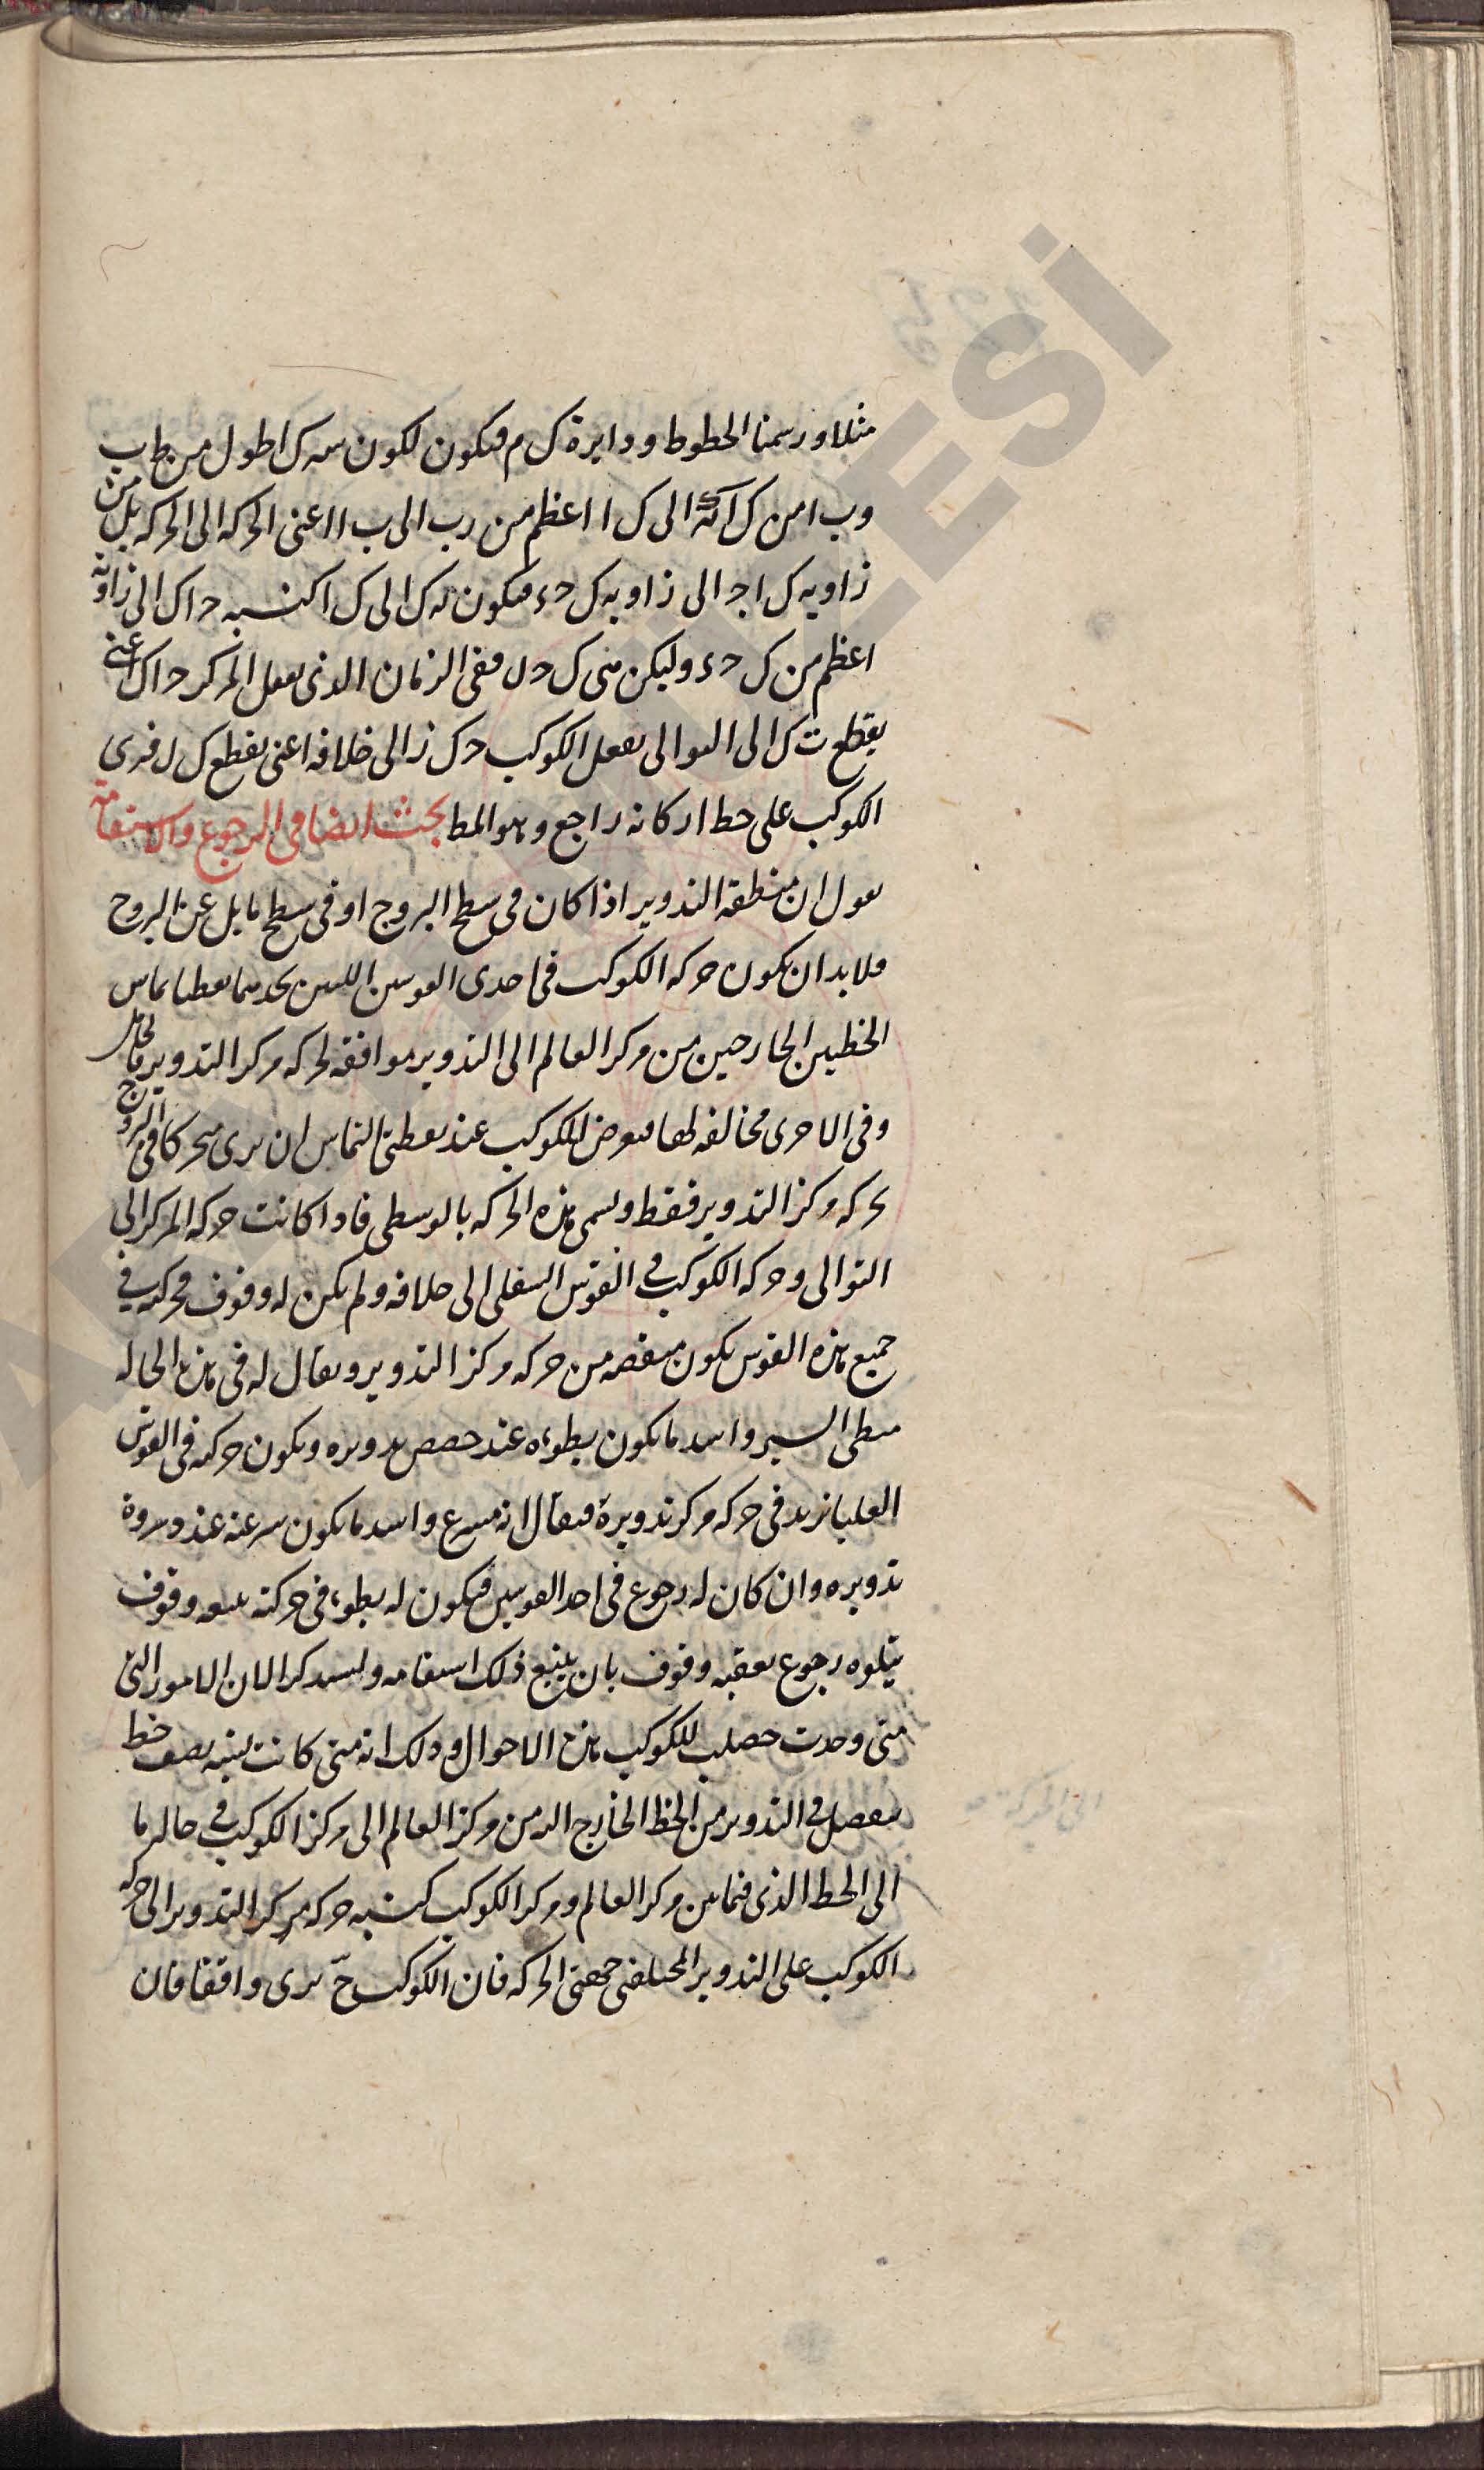 مثلا ورسمنا الخطوط ودايرة ك م فيكون لكون سه ك اطول من بط ب
وب امن ك آ الى ك ا اعظم من رب الى ب ا اعنى الحركه الى الحركه بل من
زاويه ك ا ج الى زاويه ك ح ء فيكون ه ك الى ك ا كنسبه ح ا ك الى زاويه
اعظم من ك ح ء وليكن منى ك ح ل ففى الزمان الذى يفعل المركز ح ا ك اعنى
يقطع ت ك الى التوالى يفعل الكوكب ح ك ز الى خلافه اعنى يقطع ك ل فيرى
الكوكب على خط ا ر كانه راجع وهو المط بحث ايضا فى الرجوع والاستقامة
نقول ان منطقة التدوير اذا كان فى سطح البروج او فى سطح مايل عن البروج
فلا بد ان يكون حركه الكوكب فى احدى القوسين اللتين يحدهما نقطتا تماس
الخطين الخارجين من مركز العالم الى التدوير موافقه لحركه مركز التدوير
وفى الاخرى مخالفه لها فيعرض للكوكب عند نقطتى التماس ان يرى متحركا فى البروج
بحركه مركز التدوير فقط ويسمى هذه الحركه بالوسطى فاذا كانت حركه المركز الى
التوالى وحركه الكوكب فى القوس السفلى الى خلافه ولم يكن له وقوف فحركته فى
جميع هذه القوس يكون منتقصه من حركه مركز التدوير ويقال له فى هذه الحاله
مبطئ السير واشد ما يكون بطوءه عند حضيض تدويره ويكون حركته فى القوس
العليا تزيد فى حركه مركز تدويرة فيقال انه مسرع واشد ما يكون سرعته عند ذروة
تدويره وان كان له رجوع فى احد القوسين فيكون له بطوء فى حركته يتبعه وقوف
يتلوه رجوع يعقبه وقوف بان يتبع ذلك استقامه ولنذكر الان الامور التى
متى وجدت حصلت للكوكب هذه الاحوال وذلك انه متى كانت نسبه نصف خط
ينفصل فى التدوير من الخط الخارج اليه من مركز العالم الى مركز الكوكب فى حاله ما
الى الخط الذى فيما بين مركز العالم ومركز الكوكب كنسبه حركه مركز التدوير الى حركه
الكوكب على التدوير المختلفى جهتى الحركه فان الكوكب ح يرى واقفا فان